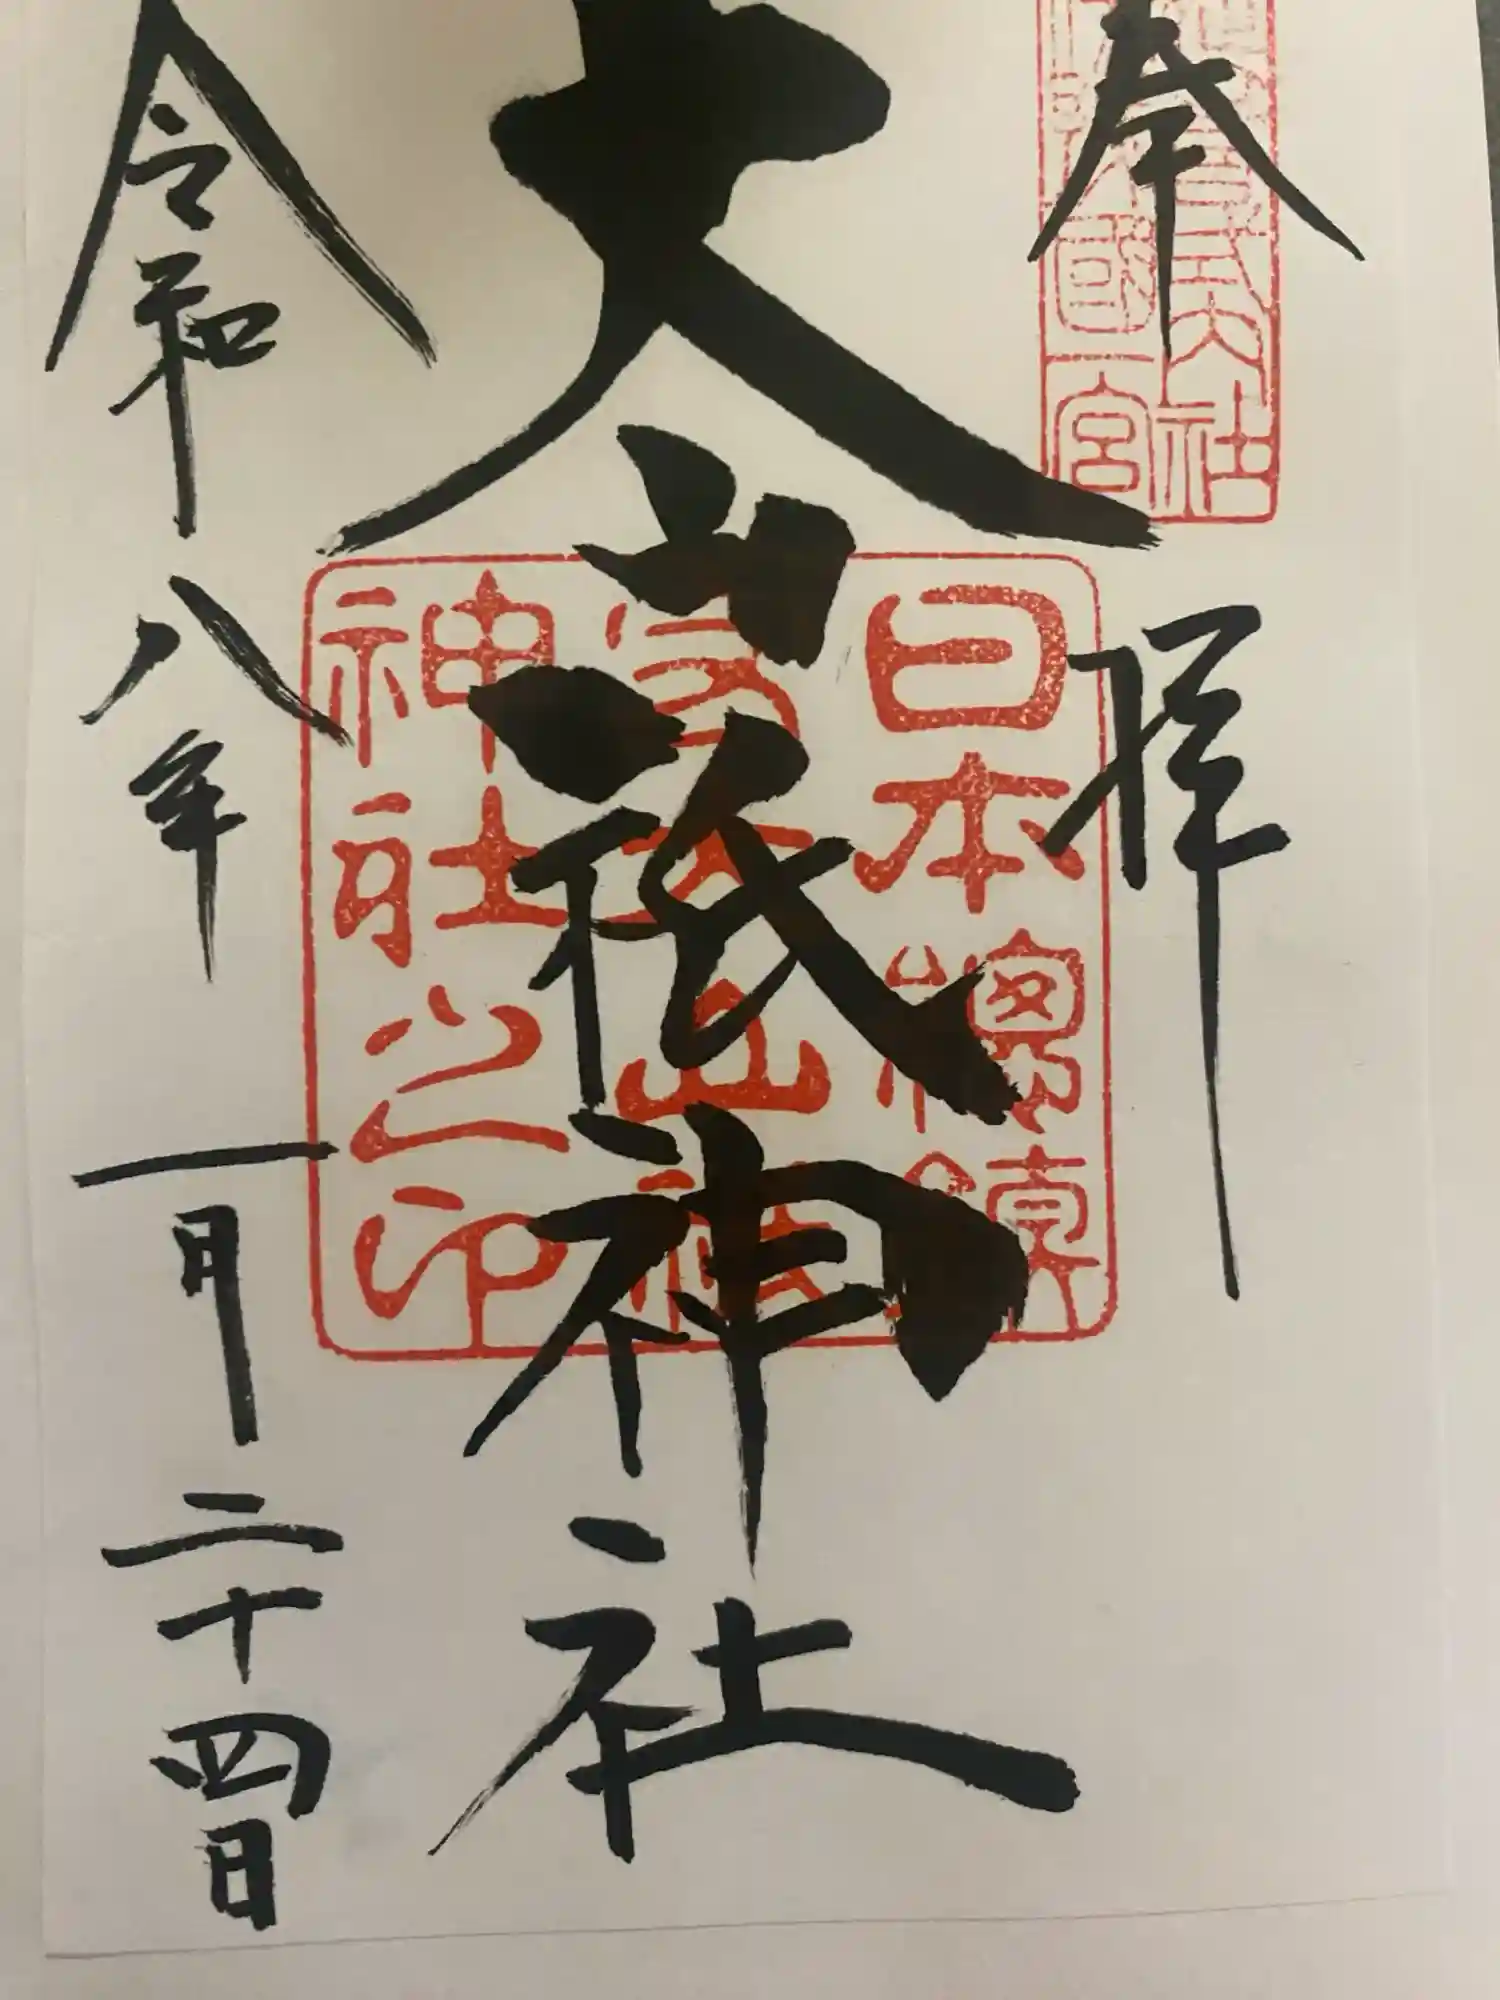 奉拝
式内社
國一宮
大山祇神社
日本總鎮
守大山祇
神社之印
令和八年一月二十四日